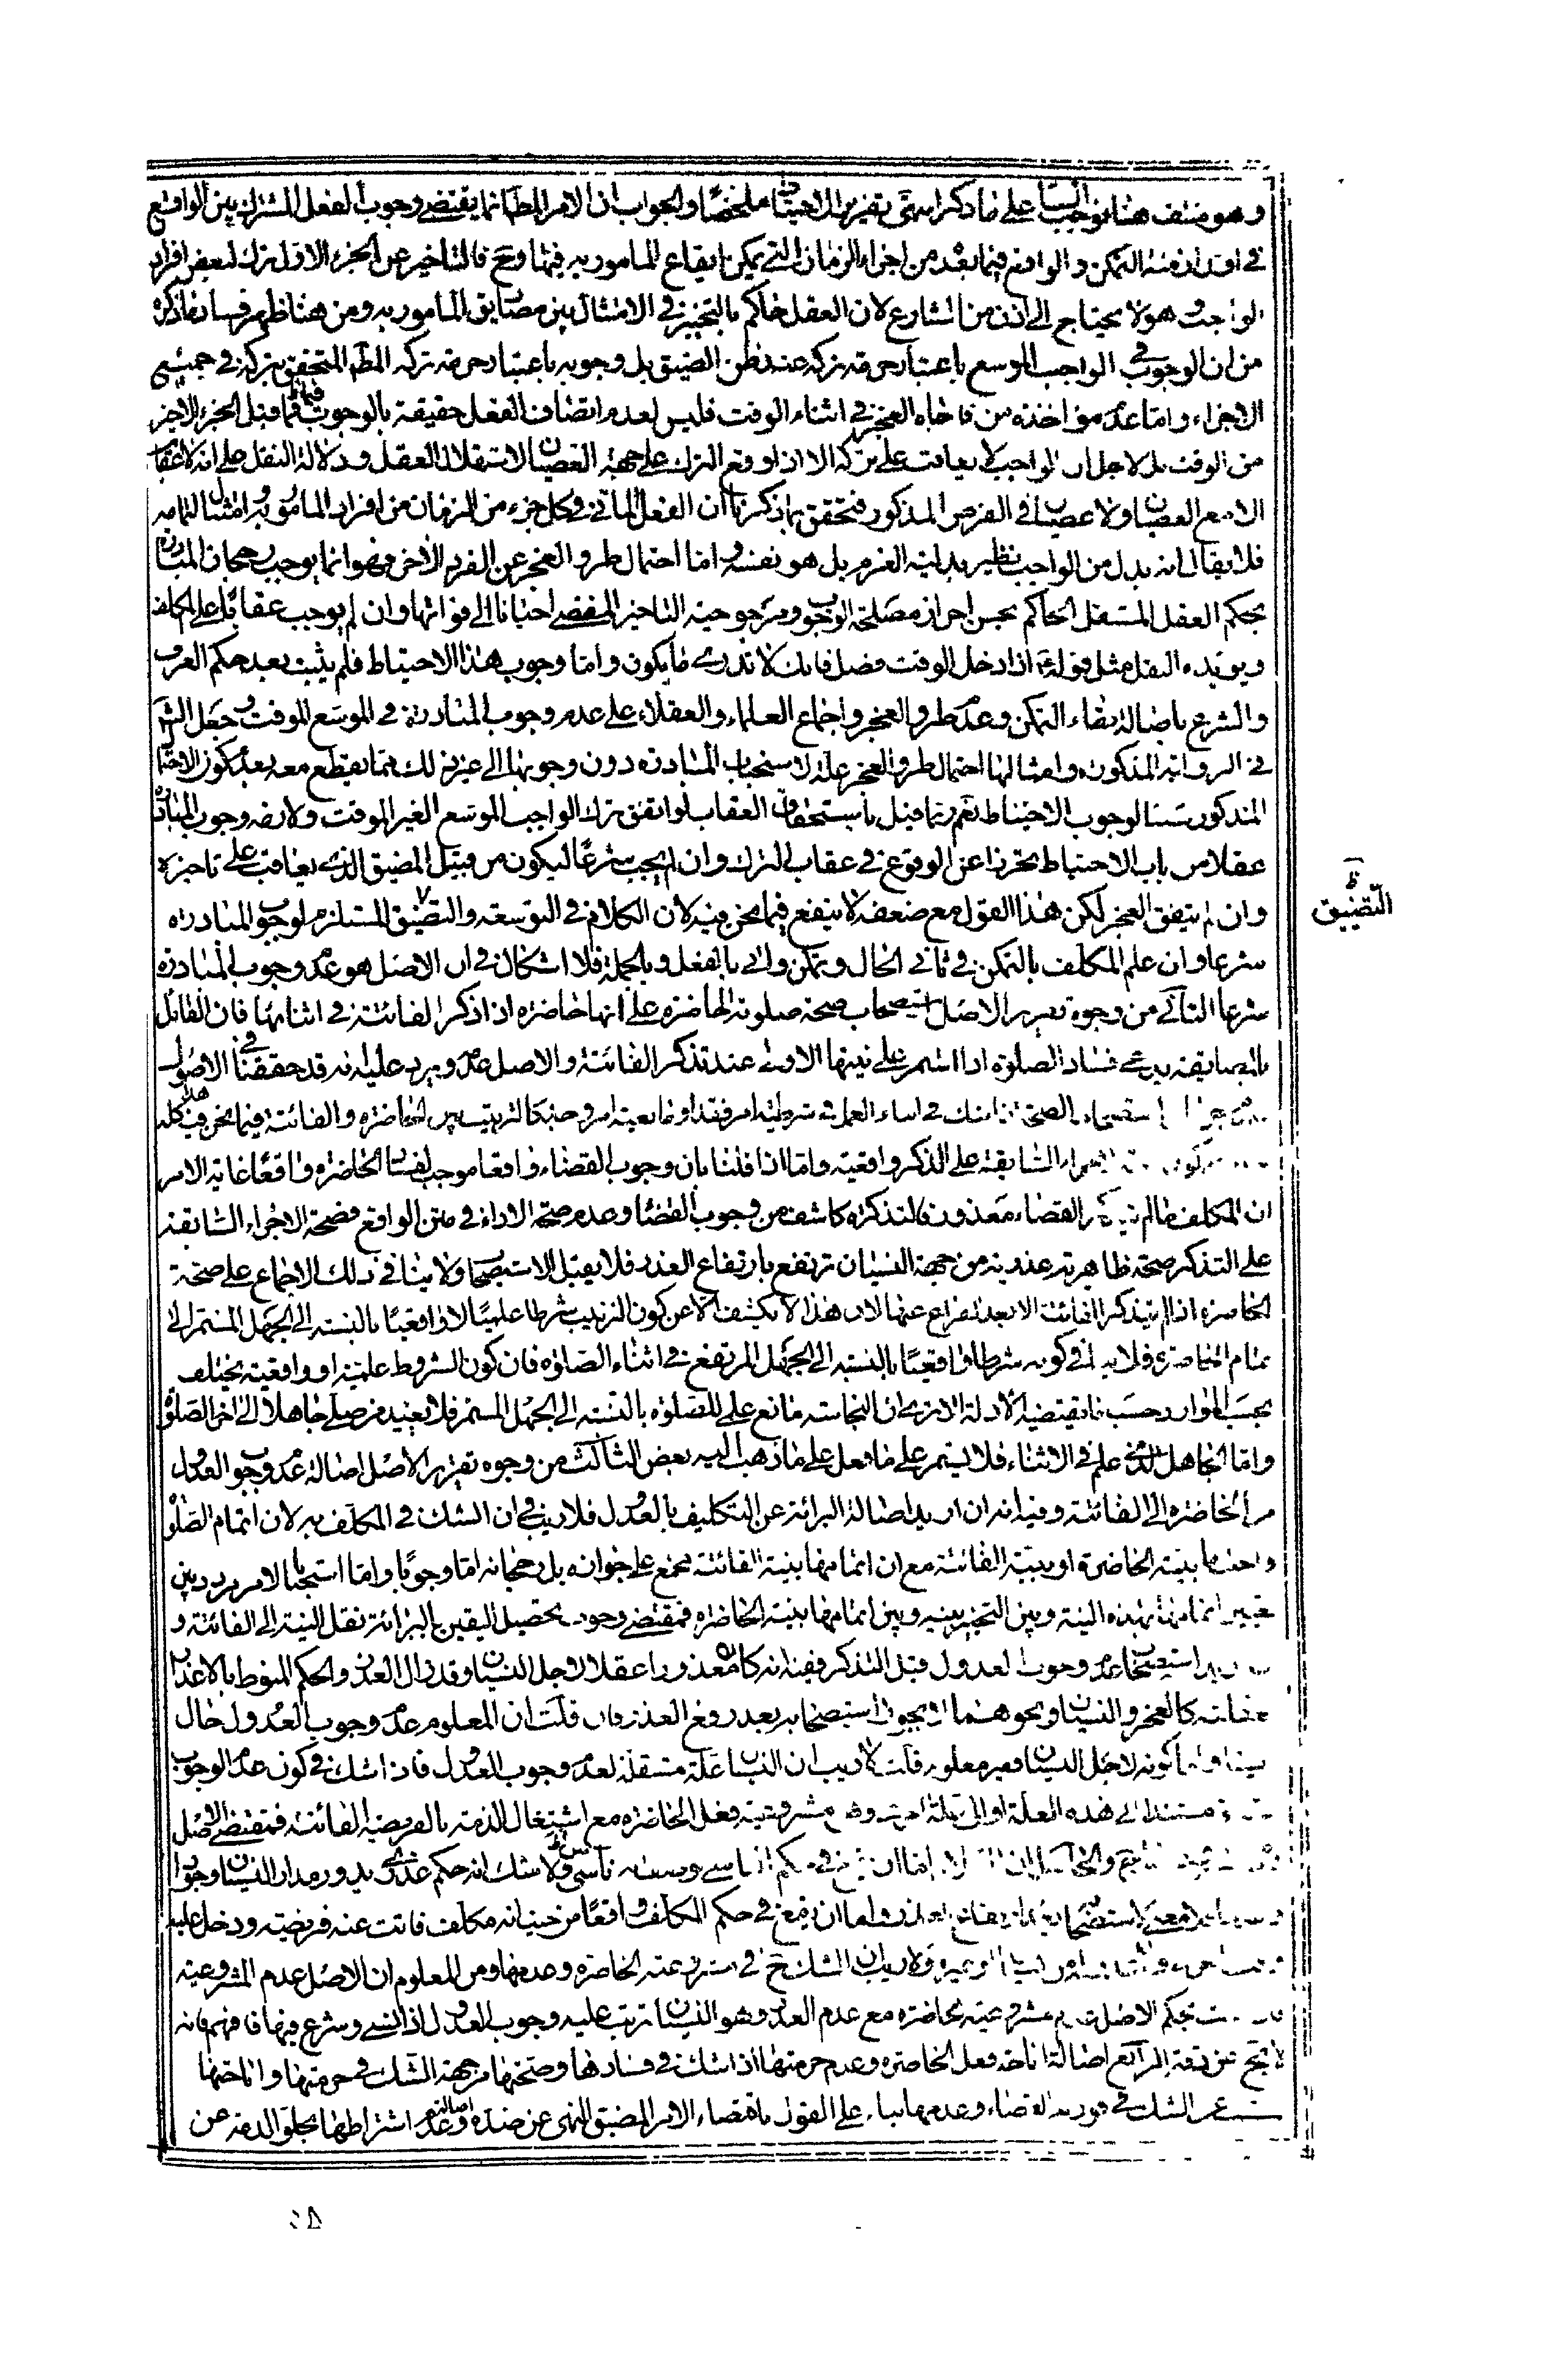 وهو منتف هنا فوجب على ما ذكر انتهى تقرير الاحتياط ملخصا والجواب ان الامر المط انما يقتضى وجوب الفعل المشترك بين الواقع
في اول ازمنة التمكن والواقع فيما بعد من اجزاء الزمان التي يمكن ايقاع المامور به فيها وح فالتاخير عن الجزء الاول ترك لبعض افراد
الواجب وهو لا يحتاج الى اذن من الشارع لان العقل حاكم بالتخيير في الامتثال بين مصاديق المامور به ومن هنا ظهر فساد ما ذكره
من ان الوجوب في الواجب الموسع باعتبار حرمة تركه عند ظن الضيق بل وجوبه باعتبار حرمة تركه المط المتحقق بتركه في جميع
الاجزاء واما عدم مؤاخذة من فاجاه العجز في اثناء الوقت فليس لعدم اتصاف الفعل حقيقة بالوجوب فيما قبل الجزء الاخير
من الوقت بل لاجل ان الواجب لا يعاقب على تركه الا اذا وقع الترك على جهة العصيان لاستقلال العقل ودلالة النقل على انه لا عقاب
الا مع العصيان ولا عصيان في الفرض المذكور فتحقق بما ذكرنا ان الفعل الماتى في كل جزء من الزمان من افراد المامور به وامتثال للامر به
فلا يقال انه بدل من الواجب نظير بدلية العزم بل هو نفسه واما احتمال طرو العجز عن الفرد الاخر فهو انما يوجب رجحان المبادرة
بحكم العقل المستقل الحاكم بحسن احراز مصلحة الوجوب ومرجوحية التاخير المفضى احيانا الى فواتها وان لم يوجب عقابا على المكلف
ويؤيده النقل مثل قوله ع اذا دخل الوقت فصل فانك لا تدرى ما يكون واما وجوب هذا الاحتياط فلم يثبت بعد حكم العرف
والشرع باصالة بقاء التمكن وعدم طرو العجز واجماع العلماء والعقلاء على عدم وجوب المبادرة في الموسع الموقت وجعل
في الرواية المذكورة وامثالها احتمال طرو العجز علة لاستحباب المبادرة دون وجوبها الى غير ذلك مما يقطع معه بعدم كون الاحتمال
المذكور سببا لوجوب الاحتياط نعم ربما قيل باستحقاق العقاب لو اتفق ترك الواجب الموسع الغير الموقت ولازمه وجوب المبادرة
عقلا من باب الاحتياط تحرزا عن الوقوع في عقاب الترك وان لم يجب شرعا ليكون من قبيل المضيق الذى يعاقب على تاخيره
وان لم يتفق العجز لكن هذا القول مع ضعفه لا ينفع فيما نحن فيه لان الكلام في التوسعة والتضيق المستلزم لوجوب المبادرة
التضيق
شرعا وان علم المكلف بالتمكن في ثانى الحال وتمكن واتى بالفعل وبالجملة فلا اشكال في ان الاصل هو عدم وجوب المبادرة
شرعا الثاني من وجوه تقرير الاصل استصحاب صحة صلوته الحاضرة على انها حاضرة اذا ذكر الفائتة في اثنائها فان القائل
بالمضايقة يدعى فساد الصلوة اذا استمر على نيتها الاولى عند تذكر الفائتة والاصل عدمه ويرد عليه انه قد حققنا في الاصول
استصحاب الصحة اذا شك في اثناء العمل في شرطية امر فقد او مانعية امر وجد كالترتيب بين الحاضرة والفائتة فيما نحن فيه كله
الاجزاء السابقة على الذكر واقعية واما اذا قلنا بان وجوب القضاء واقعا موجب لفساد الحاضرة واقعا غاية الامر
ان المكلف ما لم يتذكر القضاء معذور فالتذكر كاشف من وجوب القضاء وعدم صحة الاداء في متن الواقع فصحة الاجزاء السابقة
على التذكر صحة ظاهرية عذرية من جهة النسيان ترتفع بارتفاع العذر فلا يقبل الاستصحاب ولا ينافى ذلك الاجماع على صحة
الحاضرة اذا لم يتذكر الفائتة الا بعد الفراغ عنها لان هذا لا يكشف الا عن كون الترتيب شرطا علميا لا واقعيا بالنسبة الى الجهل المستمر الى
تمام الحاضرة فلا ينافى كونه شرطا واقعيا بالنسبة الى الجهل المرتفع في اثناء الصلوة فان كون الشروط علمية او واقعية يختلف
بحسب الموارد حسب ما يقتضيه الادلة الا ترى ان النجاسة مانع علمى للصلوة بالنسبة الى الجهل المستمر فلا يعيد من صلى جاهلا الى اخر الصلوة
واما الجاهل الذى علم في الاثناء فلا يستمر على ما فعل على ما ذهب اليه بعض الثالث من وجوه تقرير الاصل اصالة عدم وجوب العدول
من الحاضرة الى الفائتة وفيه انه ان اريد اصالة البرائة عن التكليف بالعدول فلا ريب في ان الشك في المكلف به لان اتمام الصلوة
واجب اما بنية الحاضرة او بنية الفائتة مع ان اتمامها بنية الفائتة مجمع على جوازه بل رجحانه اما وجوبا واما استحبابا الامر مردد بين
تعيين اتمامها بهذه النية وبين التخيير بينه وبين اتمامها بنية الحاضرة فمقتضى وجوب تحصيل اليقين بالبرائة نقل النية الى الفائتة و
اريد استصحاب عدم وجوب العدول قبل التذكر ففيه انه كان معذورا عقلا لاجل النسيان وقد زال العذر والحكم المنوط بالاعذار
العقلية كالعجز والنسيان ونحوهما لا يجوز استصحابه بعد رفع العذر فان قلت ان المعلوم عدم وجوب العدول حال
النسيان واما كونه لاجل النسيان فغير معلوم قلت لا ريب ان النسيان علة مستقلة لعدم وجوب العدول فاذا شك في كون عدم الوجوب
مستندا الى هذه العلة او الى علة اخرى وهى مشروعية فعل الحاضرة مع اشتغال الذمة بالفريضة الفائتة فمقتضى الاصل
ولا شك انه حكم عذرى يدور مدار النسيان وجودا
وعدما فلا معنى لاستصحابه بعد ارتفاع العذر واما ان يقع في حكم المكلف واقعا من حيث انه مكلف فاتت عنه فريضة ودخل عليه
ولا ريب ان الشك ح في مشروعية الحاضرة وعدمها ومن المعلوم ان الاصل عدم المشروعية
بحكم الاصل عدم مشروعية الحاضرة مع عدم العذر وهو النسيان ترتب عليه وجوب العدول اذا نسى وشرع فيها فافهم فانه
لا يخ عن دقة الرابع اصالة اباحة فعل الحاضرة وعدم حرمتها اذا شك في فسادها وصحتها من جهة الشك في حرمتها واباحتها
الشك في فورية القضاء وعدمها بناء على القول باقتضاء الامر المضيق النهى عن ضده واصالة عدم اشتراطها بخلو الذمة عن